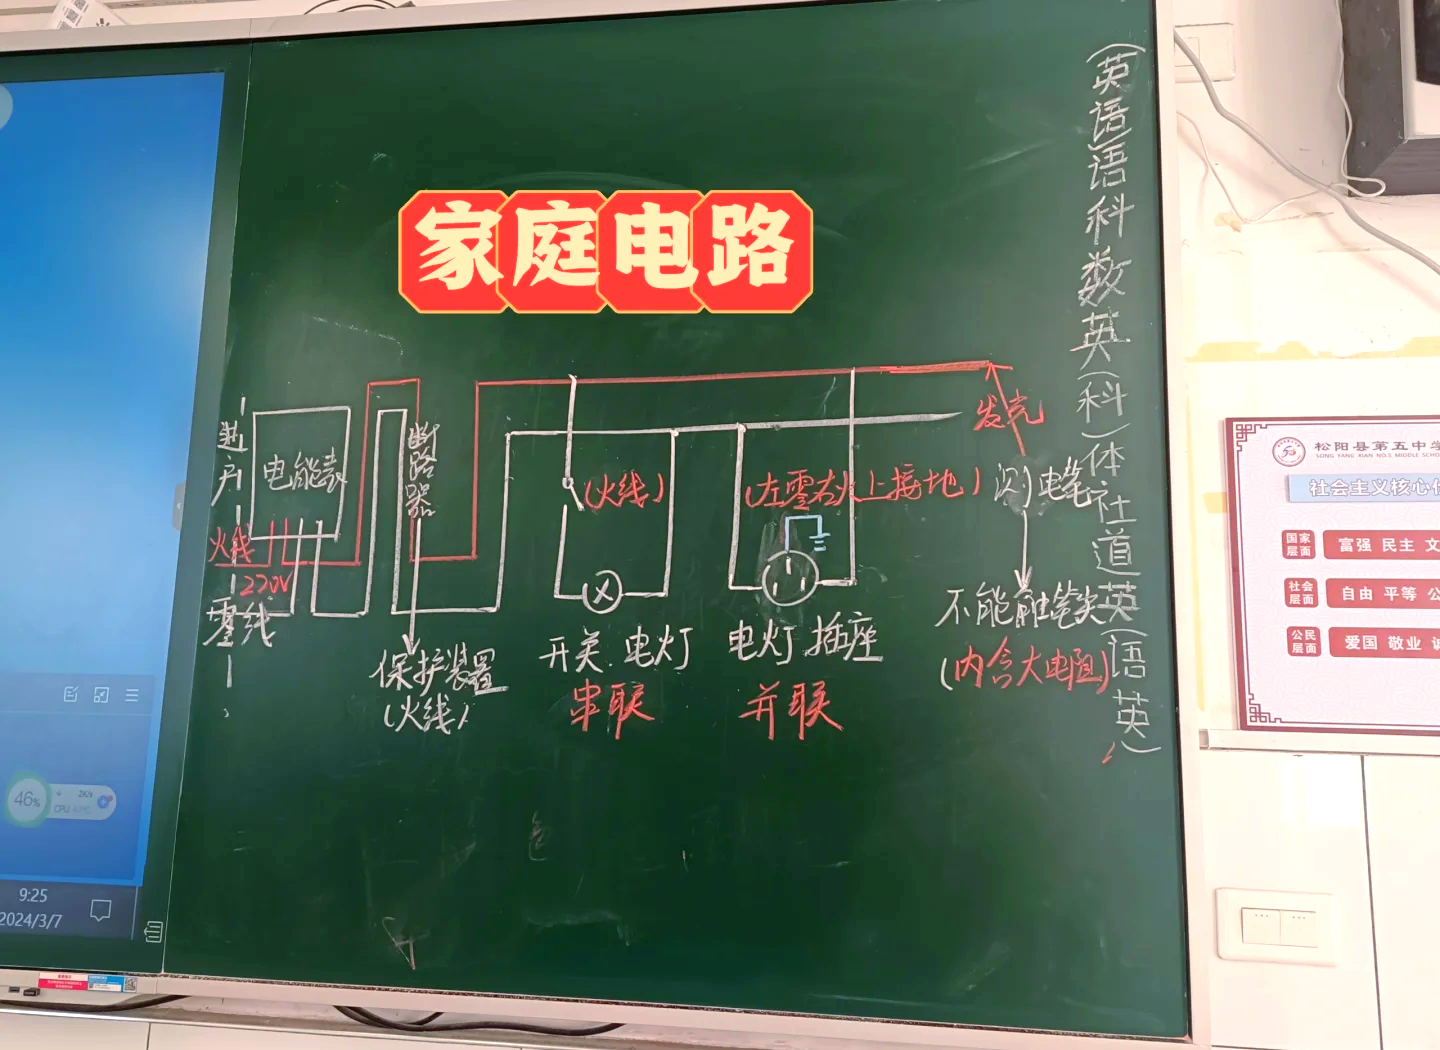 家庭电路
进户
电能表
断路器
火线
220V
零线
保护装置
(火线)
(火线)
开关.电灯
串联
(左零右火上接地)
电灯.插座
并联
发光
测电笔
不能触笔尖
(内含大电阻)
(英语)语科数英(科)体社道英(语英)
46%
2K/s
CPU
9:25
2024/3/7
松阳县第五中学
SONG YANG XIAN NO.5 MIDDLE SCHO
社会主义核心价
国家层面
富强 民主 文
社会层面
自由 平等 公
公民层面
爱国 敬业 诚